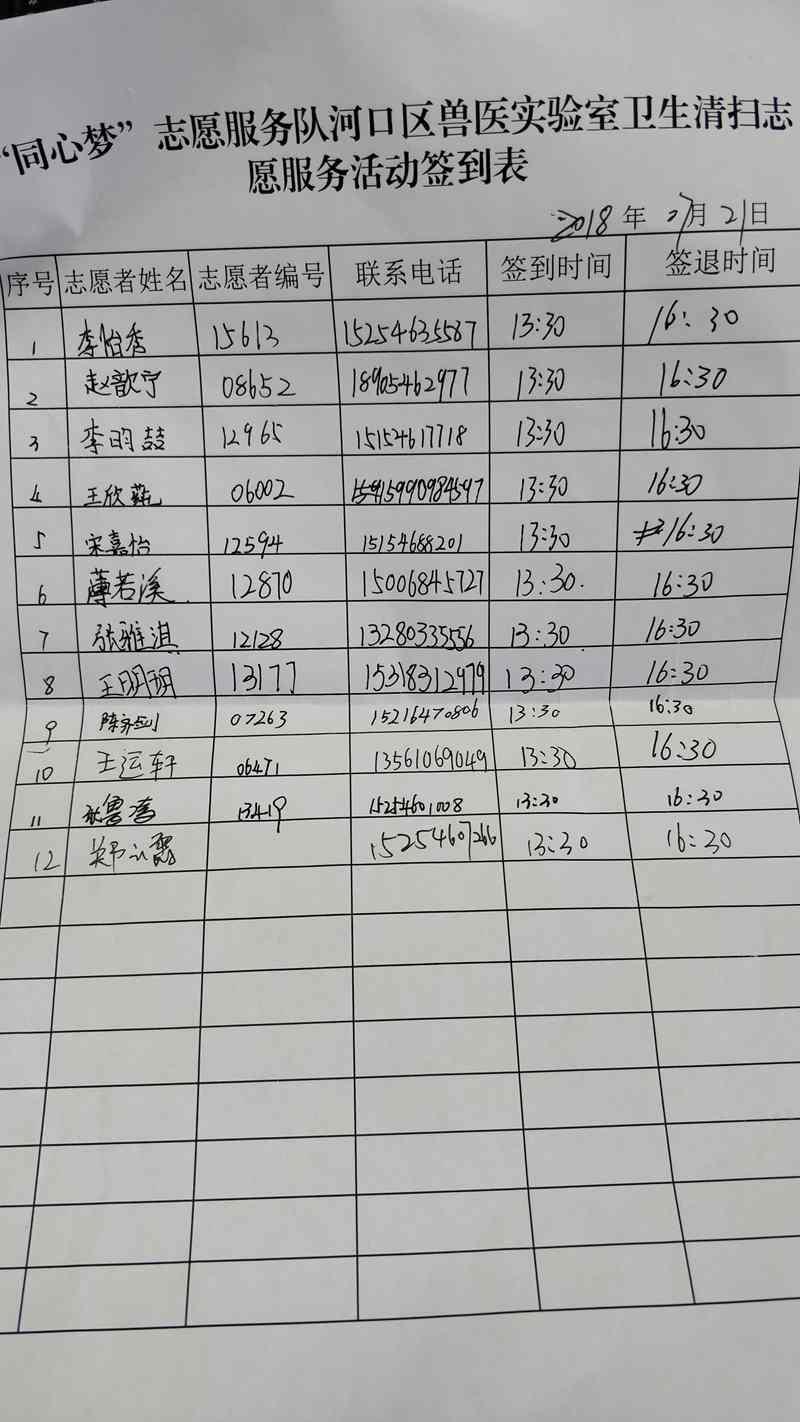 “同心梦”志愿服务队河口区兽医实验室卫生清扫志
愿服务活动签到表
2018年 07月21日
序号 志愿者姓名 志愿者编号 联系电话 签到时间 签退时间
1 李怡秀 15613 15254635587 13:30 16:30
2 赵歆宁 08652 18905462977 13:30 16:30
3 李昀喆 12965 15154617718 13:30 16:30
4 王欣 06002 13:30 16:30
5 宋嘉怡 12594 15154688201 13:30 16:30
6 薄若溪 12870 15006845727 13:30. 16:30
7 张雅淇 12128 13280335556 13:30 16:30
8 王玥玥 13177 15318312979 13:30 16:30
9 陈 07263 15216470806 13:30 16:30
10 王运轩 06471 13561069049 13:30 16:30
11 鲁 13419 15254601008 13:30 16:30
12 郑 15254607266 13:30 16:30